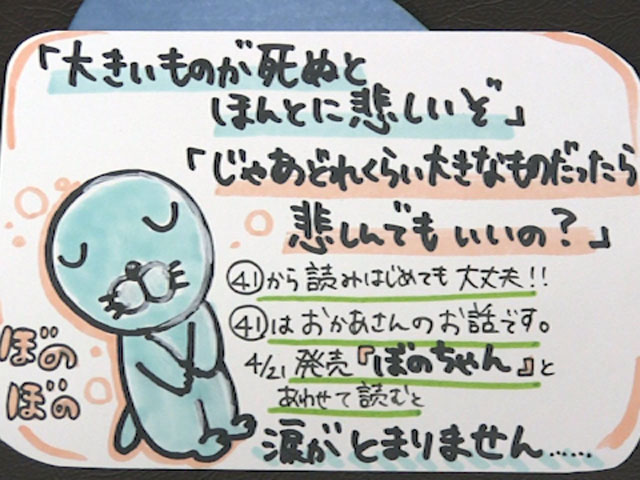 「大きいものが死ぬと
ほんとに悲しいぞ」
「じゃあどれくらい大きなものだったら
悲しんでもいいの？」
㊶から読みはじめても大丈夫!!
㊶はおかあさんのお話です。
4/21発売『ぼのちゃん』と
あわせて読むと
涙がとまりません……
ぼの
ぼの